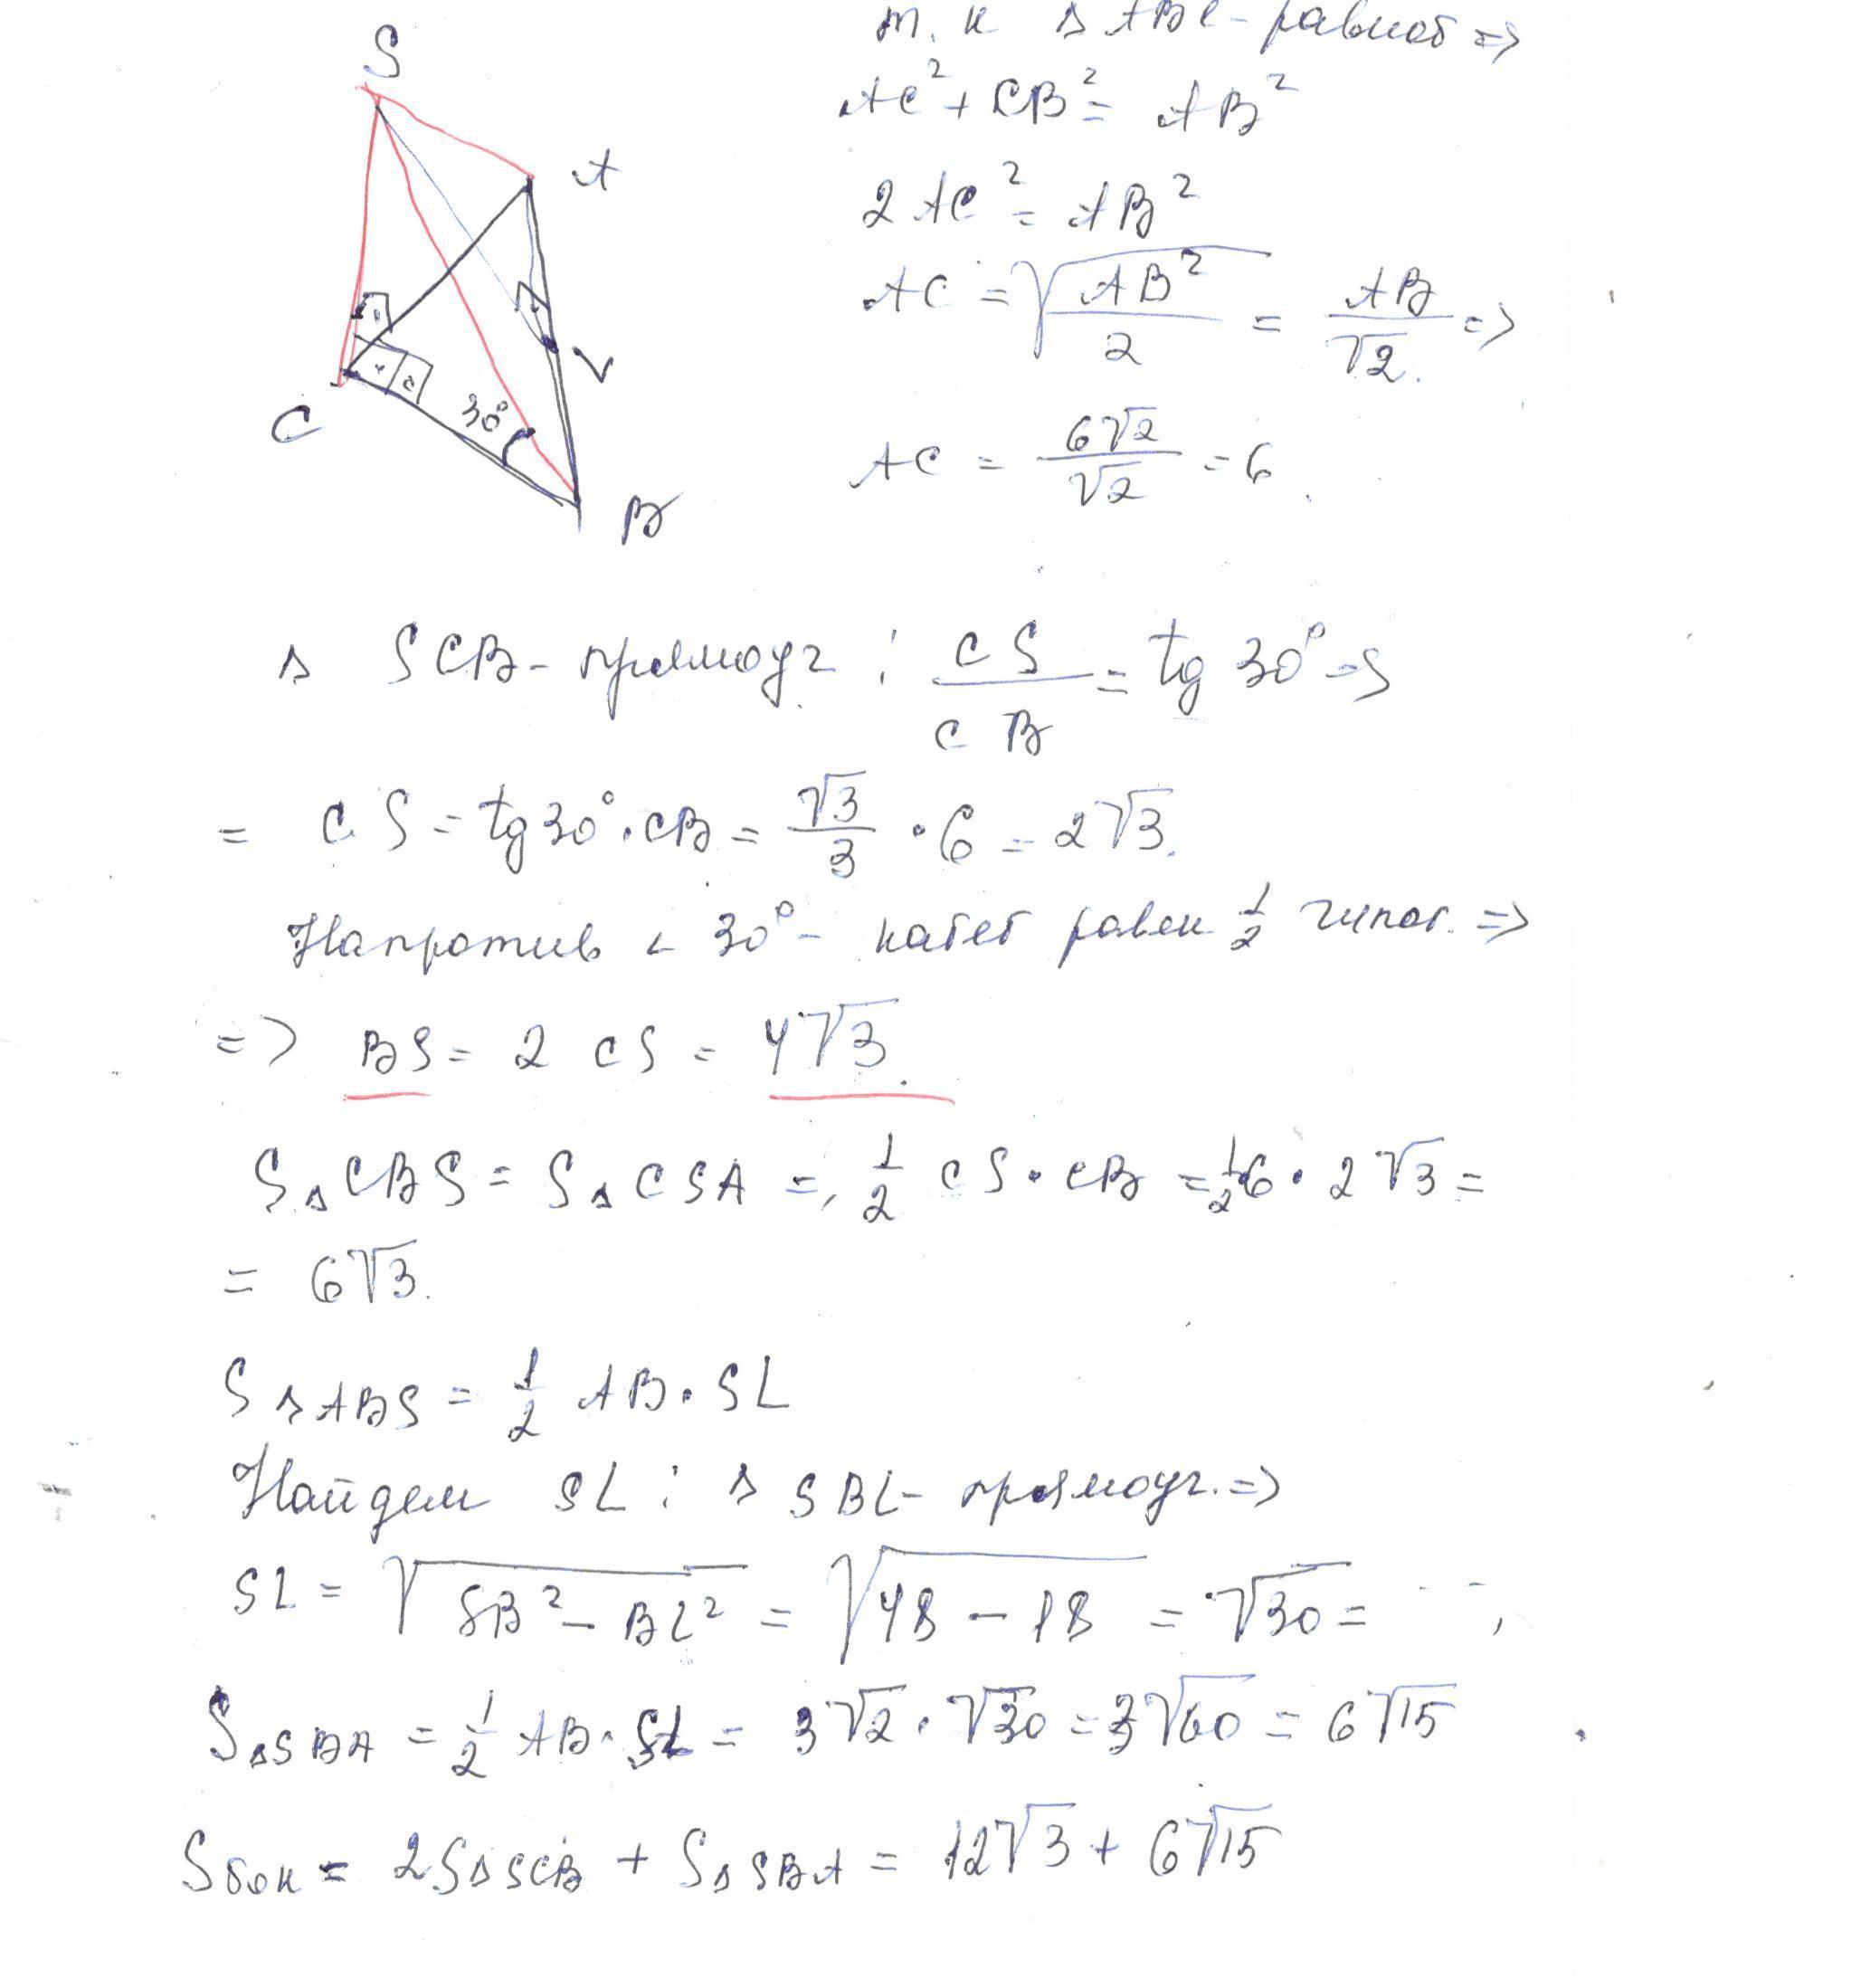 S
A
C
30°
B
т. к Δ ABC - равноб =>
AC² + CB² = AB²
2 AC² = AB²
AC = √(AB²/2) = AB/√2 =>
AC = 6√2/√2 = 6.
Δ SCB - прямоуг : CS/CB = tg 30° =>
= CS = tg 30° · CB = √3/3 · 6 = 2√3.
Напротив < 30° - катет равен 1/2 гипот. =>
=> BS = 2 CS = 4√3.
S Δ CBS = S Δ CSA = 1/2 CS · CB = 1/2 6 · 2√3 =
= 6√3.
S Δ ABS = 1/2 AB · SL
Найдем SL : Δ SBL - прямоуг. =>
SL = √(SB² - BL²) = √(48 - 18) = √30 =
S Δ SBA = 1/2 AB · SL = 3√2 · √30 = 3√60 = 6√15
Sбок = 2 S Δ SCB + S Δ SBA = 12√3 + 6√15